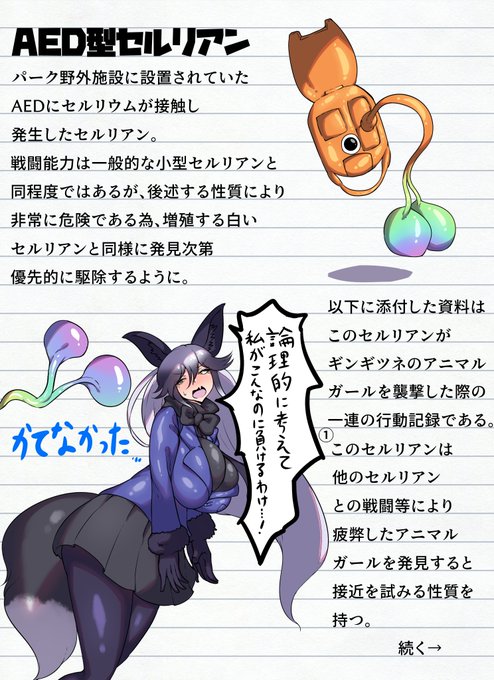 AED型セルリアン
パーク野外施設に設置されていた
AEDにセルリウムが接触し
発生したセルリアン。
戦闘能力は一般的な小型セルリアンと
同程度ではあるが、後述する性質により
非常に危険である為、増殖する白い
セルリアンと同様に発見次第
優先的に駆除するように。
論理的に考えて
私がこんなのに負けるわけ…!
かてなかった…
以下に添付した資料は
このセルリアンが
ギンギツネのアニマル
ガールを襲撃した際の
一連の行動記録である。
①
このセルリアンは
他のセルリアン
との戦闘等により
疲弊したアニマル
ガールを発見すると
接近を試みる性質を
持つ。
続く→